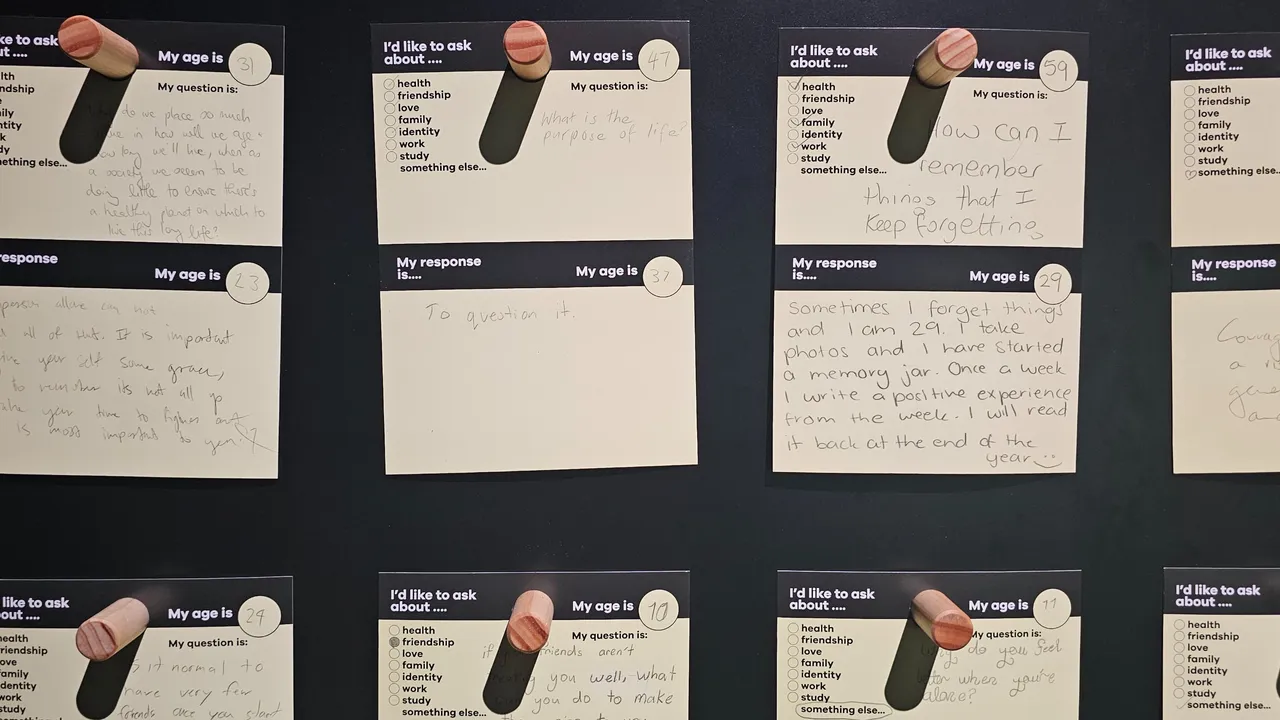 I'd like to ask
My age is 31
My question is:
do we place so much
in how well we age +
how long we'll live, when as
a society we seem to be
doing little to ensure there's
a healthy planet on which to
live this long life?
something else...
response
My age is 23
all of that. It is important
your self some grace,
to remember its not all
your time to figure out
is most important to you.
I'd like to ask
about ....
My age is 47
My question is:
health
friendship
love
family
identity
work
study
something else...
What is the
purpose of life?
My response
is....
My age is 37
To question it.
I'd like to ask
about ....
My age is 59
My question is:
health
friendship
love
family
identity
work
study
something else...
How can I
remember
things that I
Keep forgetting
My response
is....
My age is 29
Sometimes I forget things
and I am 29. I take
photos and I have started
a memory jar. Once a week
I write a positive experience
from the week. I will read
it back at the end of the
year
I'd like to ask
about ....
health
friendship
love
family
identity
work
study
something else...
My response
is....
a
like to ask
My age is 24
My question is:
it normal to
have very few
friends once you start
I'd like to ask
about ....
My age is 10
My question is:
health
friendship
love
family
identity
work
study
something else...
if friends aren't
you well, what
you do to make
I'd like to ask
about ....
My age is 11
My question is:
health
friendship
love
family
identity
work
study
something else...
do you feel
when you're
alone?
I'd like to ask
about ....
health
friendship
love
family
identity
work
study
something else...